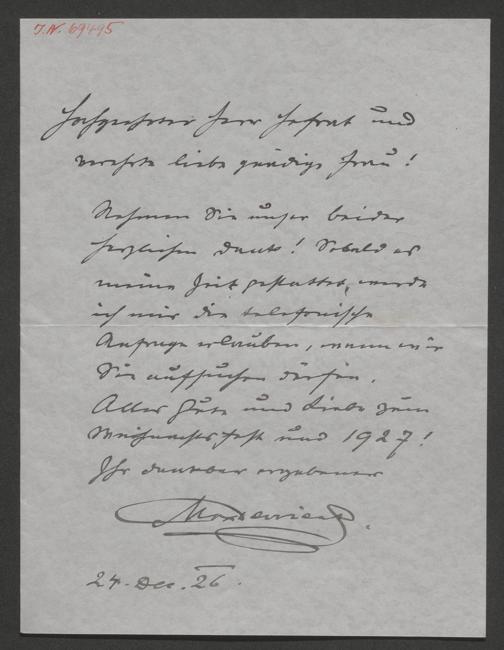 J.N. 69495
Hochgeehrter Herr Hofrat und
verehrte liebe gnädige Frau!
Nehmen Sie unser beider
herzlichen Dank! Sobald es
meine Zeit gestattet, werde
ich mir die telefonische
Anfrage erlauben, wann wir
Sie aufsuchen dürfen.
Alles Gute und Liebe zum
Weihnachtsfest und 1927!
Ihr dankbar ergebener
24. Dec. 26.